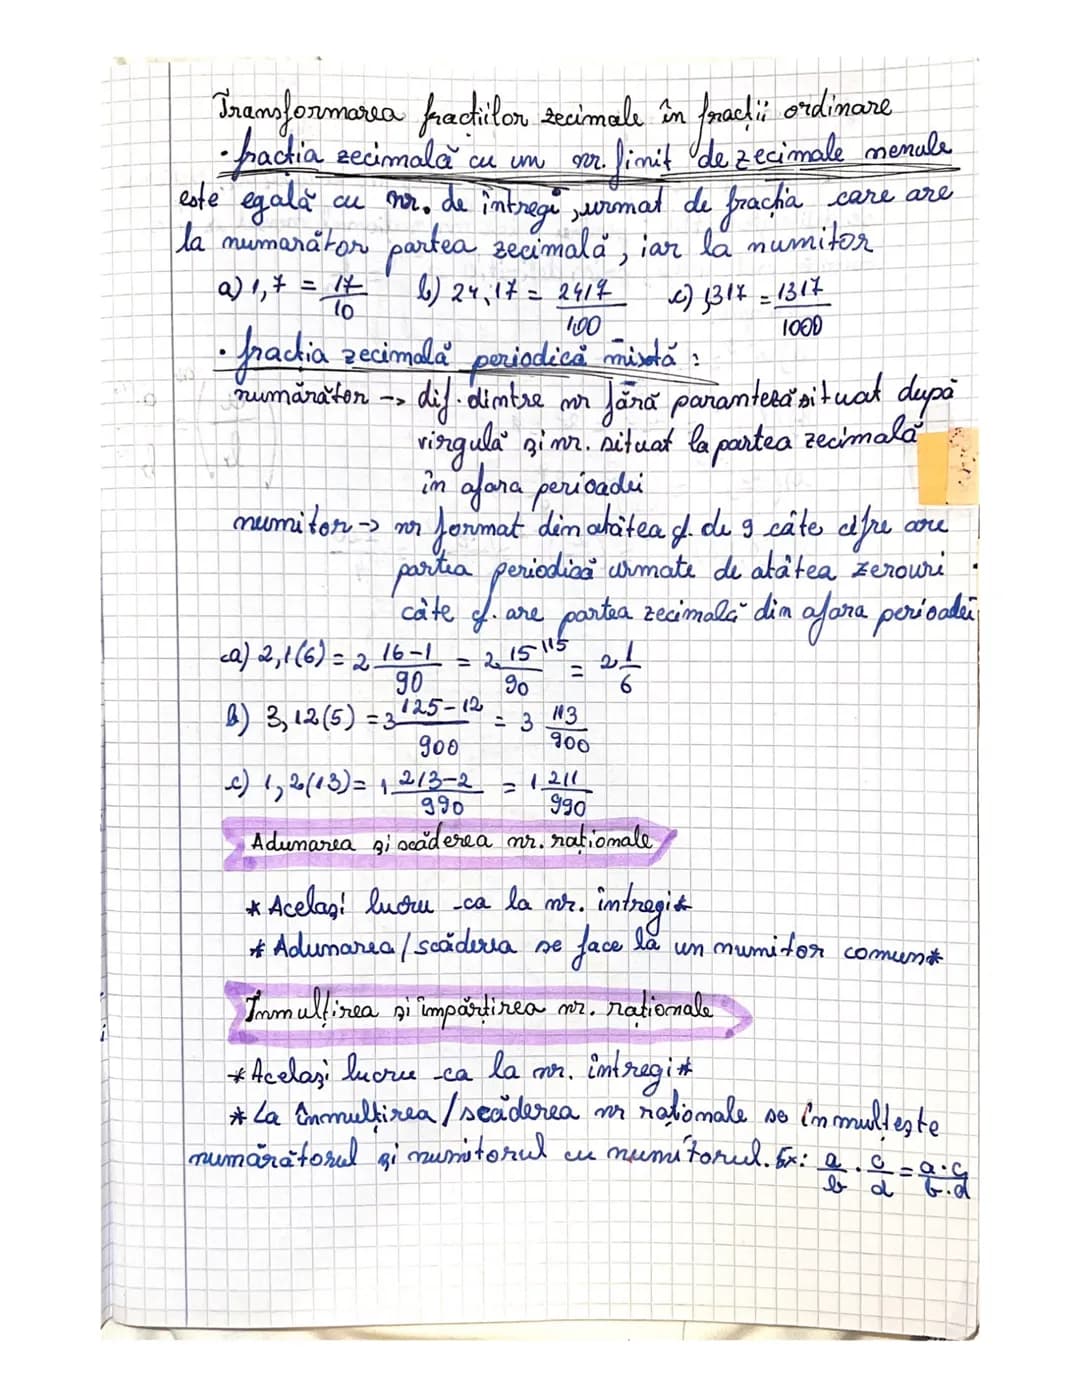 Transformarea fracțiilor zecimale în fracții ordinare
• fracția zecimală cu un nr. finit de zecimale nenule
este egală cu nr. de întregi, urmat de fracția care are
la numarător partea zecimală, iar la numitor
a) 1,7 = 17/10 b) 24,17 = 2417/100 c) 1,317 = 1317/1000
• fracția zecimală periodică mixtă :
numărător -> dif. dintre nr fără paranteză situat după
virgulă și nr. situat la partea zecimală
în afara perioadei
numitor -> nr format din atâtea cf. de 9 câte cifre are
partea periodică urmate de atâtea zerouri
câte cf. are partea zecimală din afara perioadei
a) 2,1(6) = 2 16-1/90 = 2 15/90 = 2 1/6
b) 3,12(5) = 3 125-12/900 = 3 113/900
c) 1,2(13) = 1 213-2/990 = 1 211/990
Adunarea și scăderea nr. raționale
* Același lucru ca la nr. întregi *
* Adunarea / scăderea se face la un numitor comun *
Înmulțirea și împărțirea nr. raționale
* Același lucru ca la nr. întregi *
* La înmulțirea / scăderea nr raționale se înmulțește
numărătorul și numitorul cu numitorul. Ex: a/b · c/d = a·c/b·d